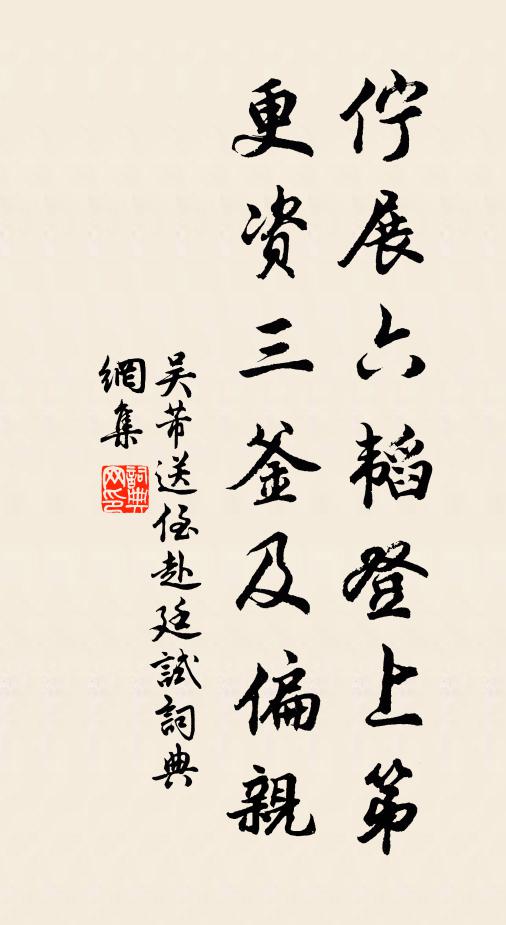 佇展六韜登上第
更资三釜及偏親
吴芾送侄赴廷試詞典
網集
詞典網印